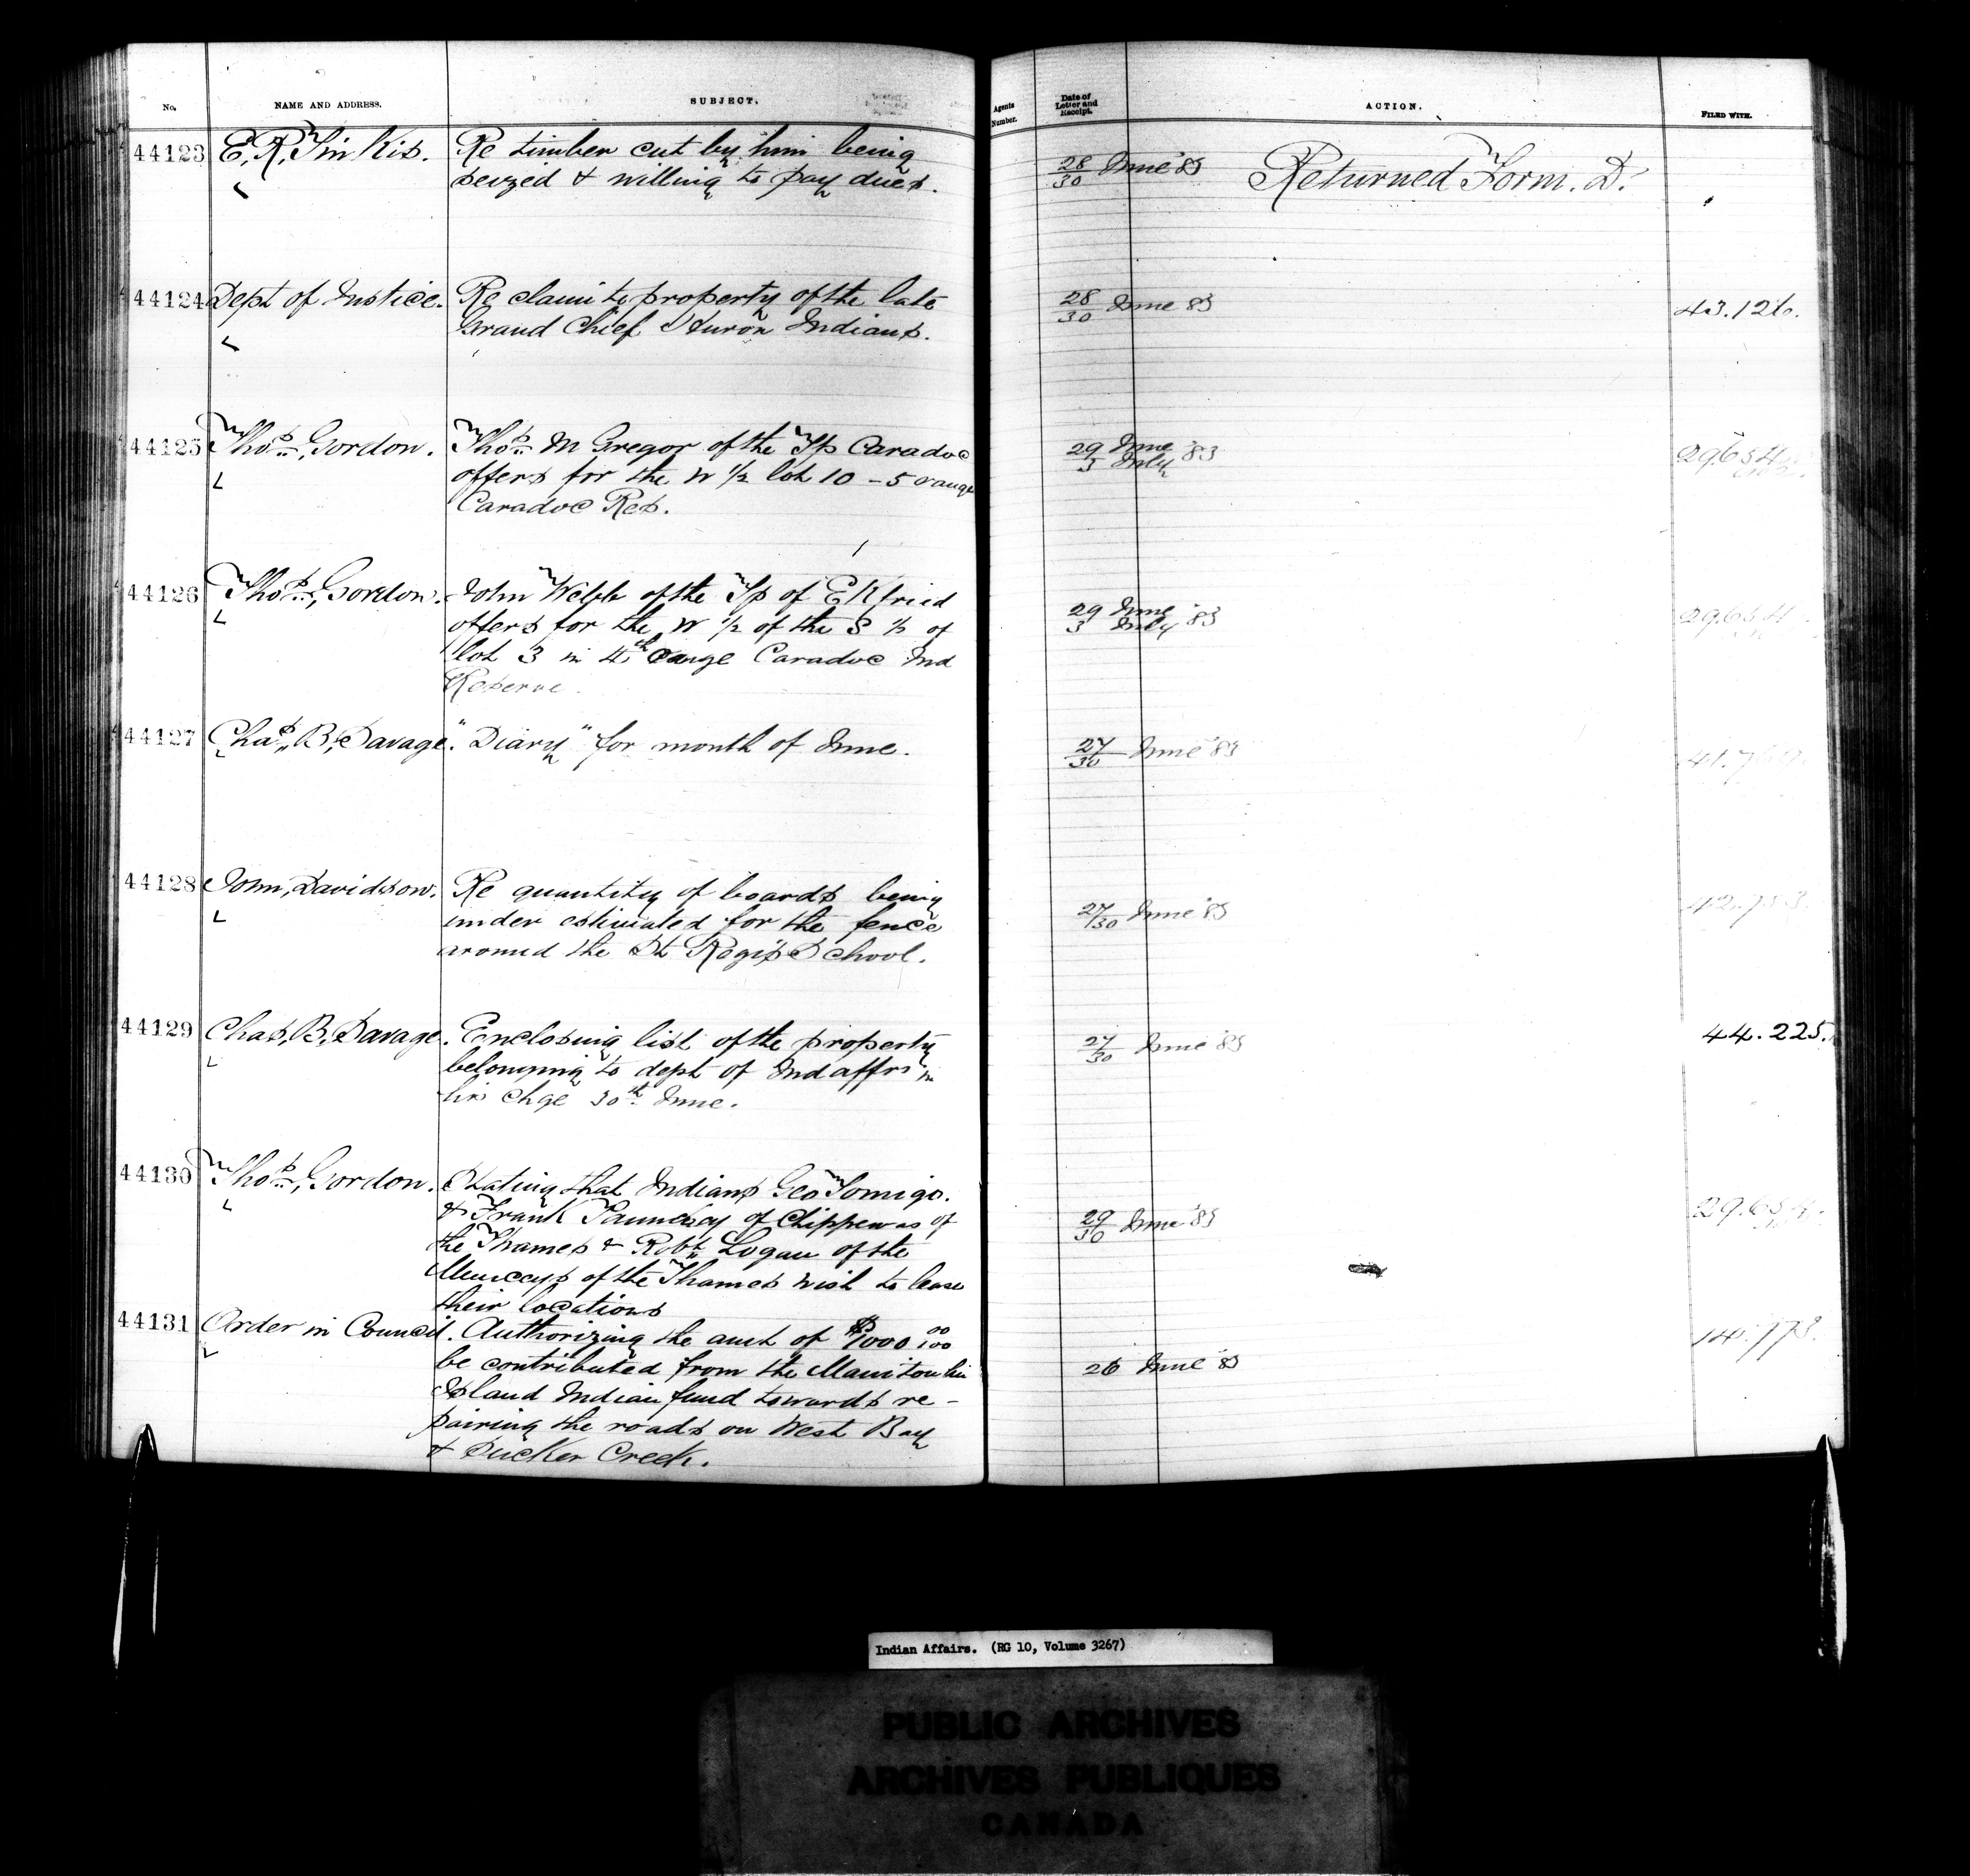 No. NAME AND ADDRESS. SUBJECT. Agents Number. Date of Letter and Receipt. ACTION. FILED WITH.
44123 E. R. Re timber cut by him being
seized & willing to pay dues.
28/30 June 83 Returned Form. D.
44124 Dept of Justice. Re claim to property of the late
Grand Chief Huron Indians.
28/30 June 83 43.126.
44125 Thos. Gordon. Thos. McGregor of the Tp Caradoc
offers for the W 1/2 lot 10 - 5 range
Caradoc Res.
29 June
3 July '83 29.654
44126 Thos. Gordon. John Webb of the Tp of Ekfrid
offers for the W 1/2 of the S 1/2 of
lot 3 in 4th range Caradoc Ind
Reserve.
29 June
3 July '83 29.654
44127 Chas. B. Savage. "Diary" for month of June.
27/30 June '83
44128 John, Davidson. Re quantity of boards being
under estimated for the fence
around the St Regis School.
27/30 June '83
44129 Chas. B. Savage. Enclosing list of the property
belonging to dept of Ind affrs in
his chge 30th June.
27/30 June 83 44.225.
44130 Thos. Gordon. Stating that Indians Geo
& Frank of Chippewas of
the Thames & Robt Logan of the
Munceys of the Thames wish to lease
their locations
29/30 June '83 29.654
44131 Order in Council. Authorizing the amt of $1000 00/100
be contributed from the Manitoulin
Island Indian fund towards re-
pairing the roads on West Bay
& Sucker Creek.
26 June '83
Indian Affairs. (RG 10, Volume 3267)
PUBLIC ARCHIVES
ARCHIVES PUBLIQUES
CANADA